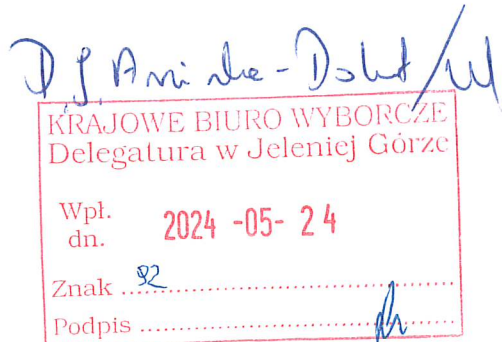 KRAJOWE BIURO WYBORCZE
Delegatura w Jeleniej Górze
Wpł.
dn. 2024 -05- 24
Znak 92
Podpis